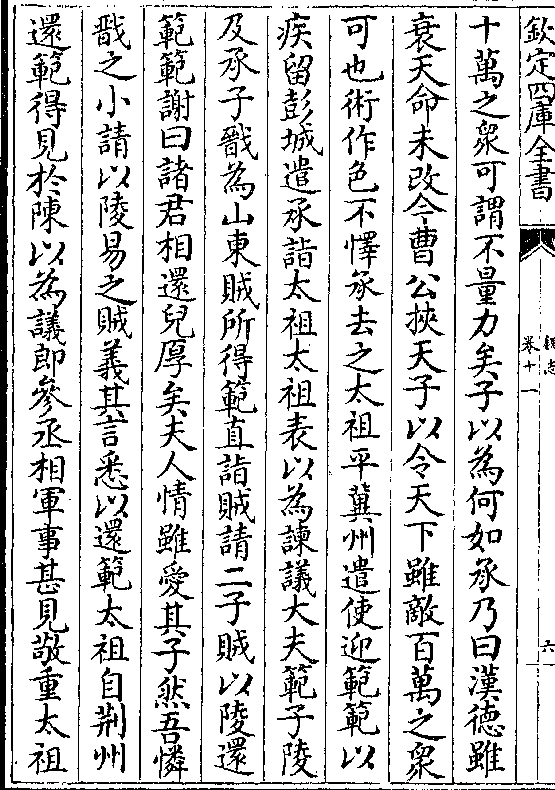 欽定四庫全書
魏志
卷十一
六
十萬之衆可謂不量力矣子以為何如承乃曰漢徳雖
衰天命未改今曹公挾天子以令天下雖敵百萬之衆
可也術作色不懌承去之太祖平冀州遣使迎範範以
疾留彭城遣承詣太祖太祖表以為諫議大夫範子陵
及承子戩為山東賊所得範直詣賊請二子賊以陵還
範範謝曰諸君相還兒厚矣夫人情雖愛其子然吾憐
戩之小請以陵易之賊義其言悉以還範太祖自荆州
還範得見於陳以為議郎參丞相軍事甚見敬重太祖